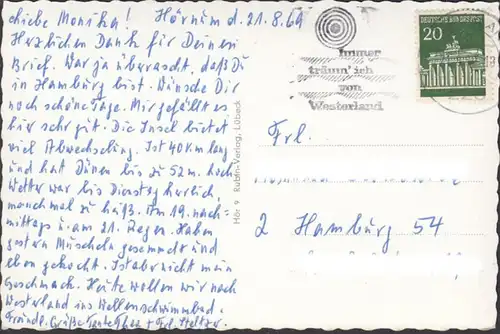 Liebe Monika! Hörnum d. 21.8.69
Herzlichen Dank für Deinen
Brief. War ja überrascht, daß Du
in Hamburg bist. Wünsche Dir
noch schöne Tage. Mir gefällt es
hier sehr gut. Die Insel bietet
viel Abwechslung. Ist 40 km lang
und hat Dünen bis zu 52 m. hoch.
Wetter war bis Dienstag herlich,
manchmal zu heiß. Am 19. nach-
mittags u. am 21. Regen. Haben
gestern Muscheln gesammelt und
eben gekocht. Ist aber nicht mein
Geschmack. Heute wollen wir nach
Westerland ins Wellenschwimmbad.
Freundl. Grüße Tante + Frl.
Hör 9 Verlag, Lübeck
immer
träum' ich
von
Westerland
DEUTSCHE BUNDESPOST
20
Frl.
2 Hamburg 54